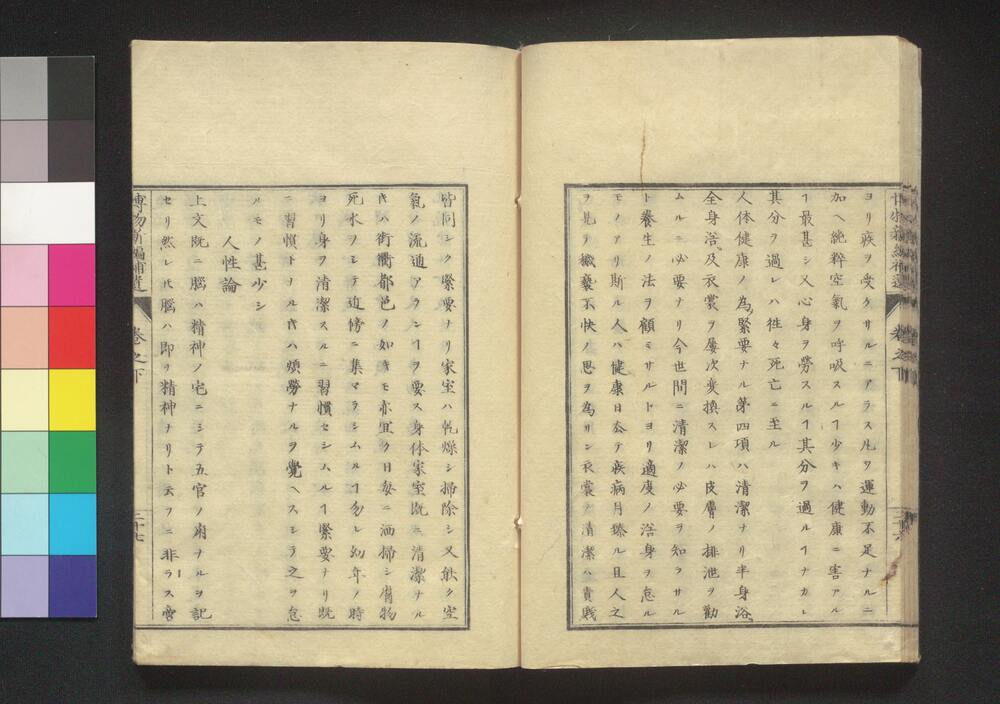 ヨリ疾ヲ受クサルニアラス凡ソ運動不足ナルニ
加ヘ純粹空氣ヲ呼吸スルヿ少キハ健康ニ害アル
ヿ最甚シ又心身ヲ勞スルヿ其分ヲ過ルヿナカレ
其分ヲ過レハ徃々死亡ニ至ル
人体健康ノ為緊要ナル第四項ハ清潔ナリ半身浴
全身浴及衣裳ヲ屢次変換スレハ皮膚ノ排泄ヲ勸
ムルニ必要ナリ今世間ニ清潔ノ必要ヲ知ラサル
ト養生ノ法ヲ顧ミサルトヨリ適度ノ浴身ヲ怠ル
モノアリ斯ル人ハ健康日々ニ疾病月臻ル且人之
ヲ見テ穢褻不快ノ思ヲ為サン衣裳ノ清潔ハ貴賤
皆同シク緊要ナリ家室ハ乾燥シ掃除シ又能ク空
氣ノ流通アランヿヲ要ス身体家室既ニ清潔ナル
時ハ街衢都邑ノ如キモ亦宜ク日毎ニ洒掃シ腐物
死水ヲシテ近傍ニ集マラシムルヿ勿レ幼年ノ時
ヨリ身ヲ清潔スルニ習慣セシムルヿ緊要ナリ既
ニ習慣トナル時ハ煩勞ナルヲ覺ヘスシテ之ヲ怠
ルモノ甚少シ
人性論
上文既ニ腦ハ精神ノ宅ニシテ五官ノ府ナルヲ記
セリ然レ𪜈腦ハ即チ精神ナリト云フニ非ラス嘗
博物新編補遺 卷之下 三十七